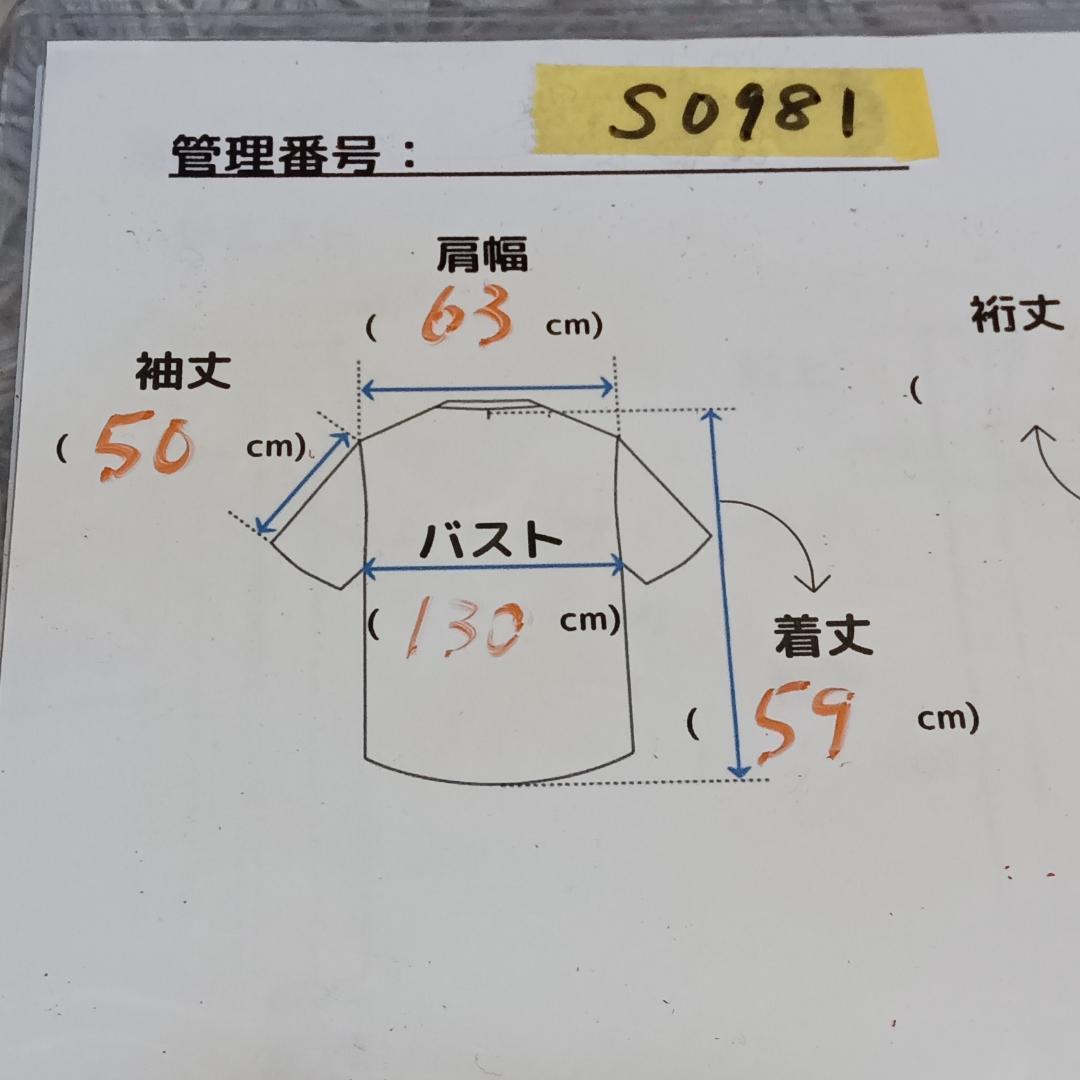 S0981
管理番号：
肩幅
( 63 cm)
裄丈
袖丈
(
( 50 cm)
バスト
( 130 cm)
着丈
( 59 cm)